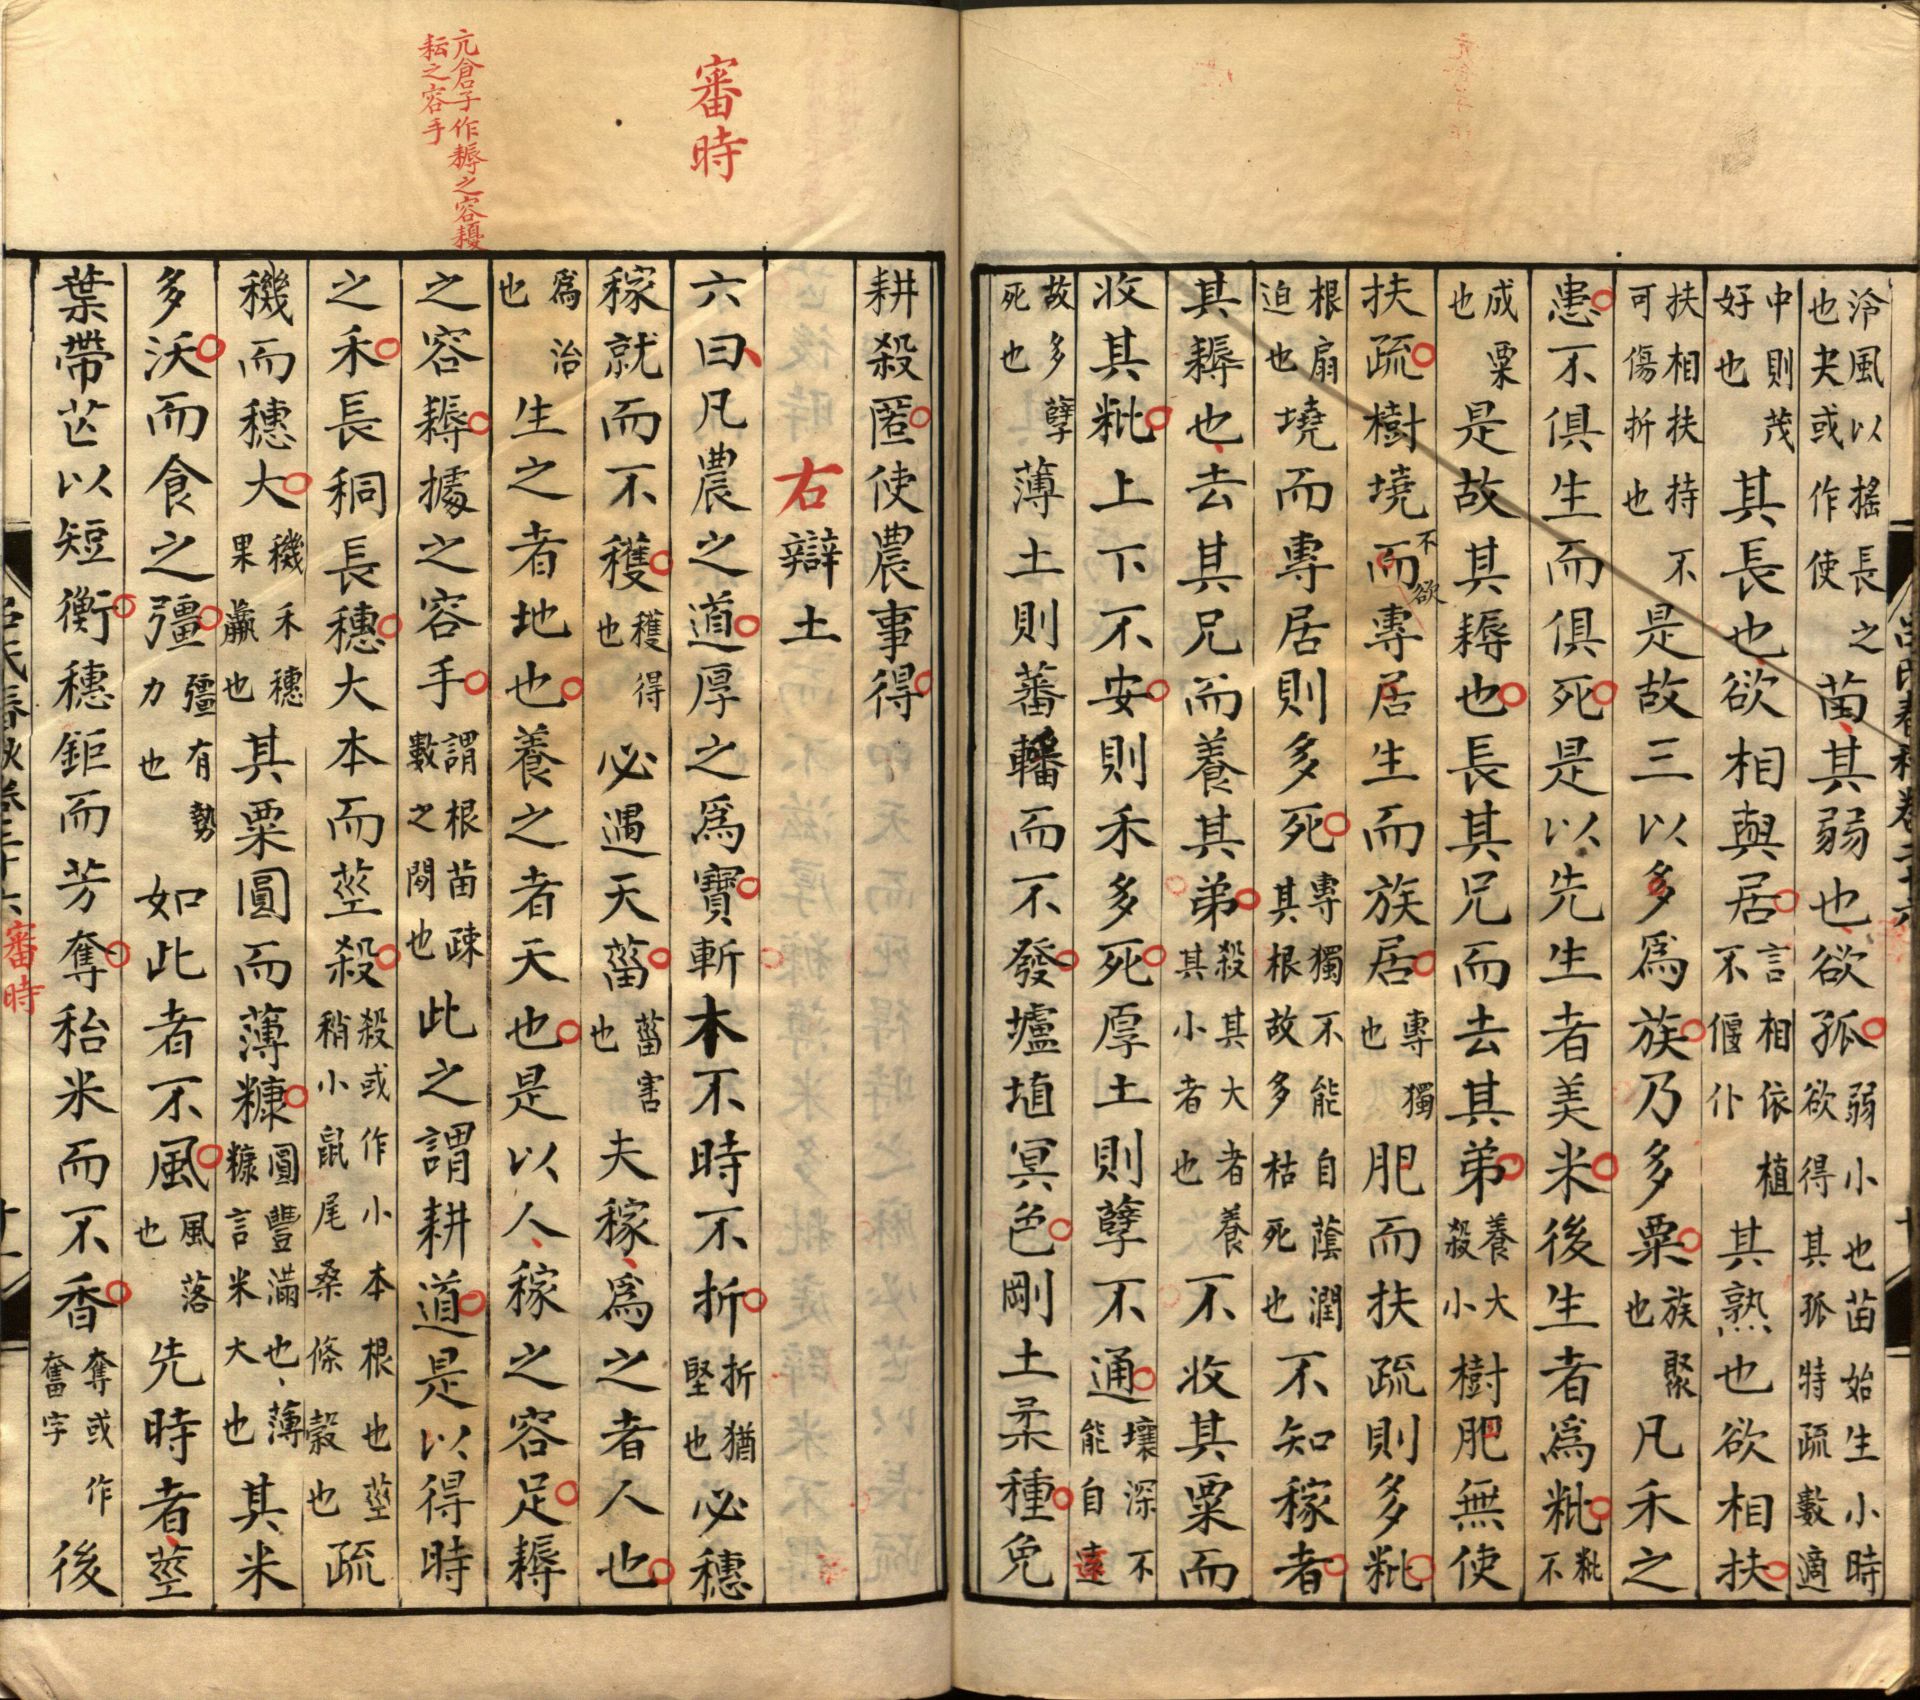 泠風以搖長之
也夬或作使
苗其弱也欲孤
弱小也苗始生小時
欲得其孤特疏數適
中則茂
好也
其長也欲相與居
言相依植
不偃仆
其熟也欲相扶
扶相扶持不
可傷折也
是故三以多爲族乃多粟
族聚
也
凡禾之
患不俱生而俱死是以先生者美米後生者爲粃
粃不
成粟
也
是故其耨也長其兄而去其弟
養大
殺小
樹肥無使
扶疏樹墝不欲而專居生而族居
專獨
也
肥而扶疏則多粃
根扇
迫也
墝而專居則多死
專獨不能自蔭潤
其根故多枯死也
不知稼者
其耨也去其兄而養其弟
殺其大者養
其小者也
不收其粟而
收其粃上下不安則禾多死厚土則孽不通
壤深不
能自達
故多孽
死也
薄土則蕃轓而不發壚埴冥色剛土柔種免
吕氏春秋卷二十六
十
耕殺匿使農事得
右辯土
審時
六曰凡農之道厚之爲寶斬本不時不折
折猶
堅也
必穗
稼就而不穫
穫得
也
必遇天菑
菑害
也
夫稼爲之者人也
爲治
也
生之者地也養之者天也是以人稼之容足耨
亢倉子作耨之容耰
耘之容手
之容耨據之容手
謂根苗疎
數之間也
此之謂耕道是以得時
之禾長秱長穗大本而莖殺
殺或作小本根也莖
稍小鼠尾桑條穀也
疏
穖而穗大
穖禾穗
果蠃也
其粟圓而薄糠
圓豐滿也薄
糠言米大也
其米
多沃而食之彊
彊有勢
力也
如此者不風
風落
也
先時者莖
葉帶芒以短衡穗鉅而芳奪秮米而不香
奪或作
奮字
後
吕氏春秋卷二十六
審時
十一